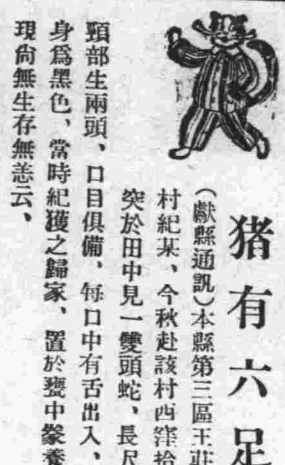 猪有六足
（獻縣通訊）本縣第三區王莊
村紀某、今秋赴該村西窪拾
突於田中見一雙頭蛇、長尺
頸部生兩頭、口目俱備、每口中有舌出入、
身爲黑色、當時紀獲之歸家、置於甕中豢養
現尚無生存無恙云、